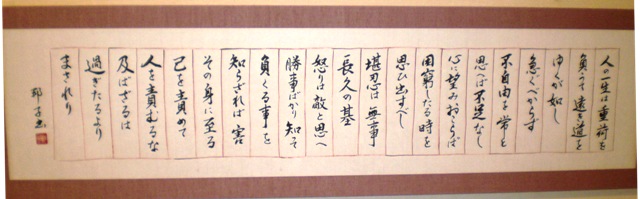 人の一生は重荷を
負うて遠き道を
ゆくが如し
急ぐべからず
不自由を常と
思へば不足なし
心に望みおこらば
困窮したる時を
思ひ出すべし
堪忍は無事
長久の基
怒りは敵と思へ
勝事ばかり知って
負くる事を
知らざれば害
その身に至る
己を責めて
人を責むるな
及ばざるは
過ぎたるより
まされり